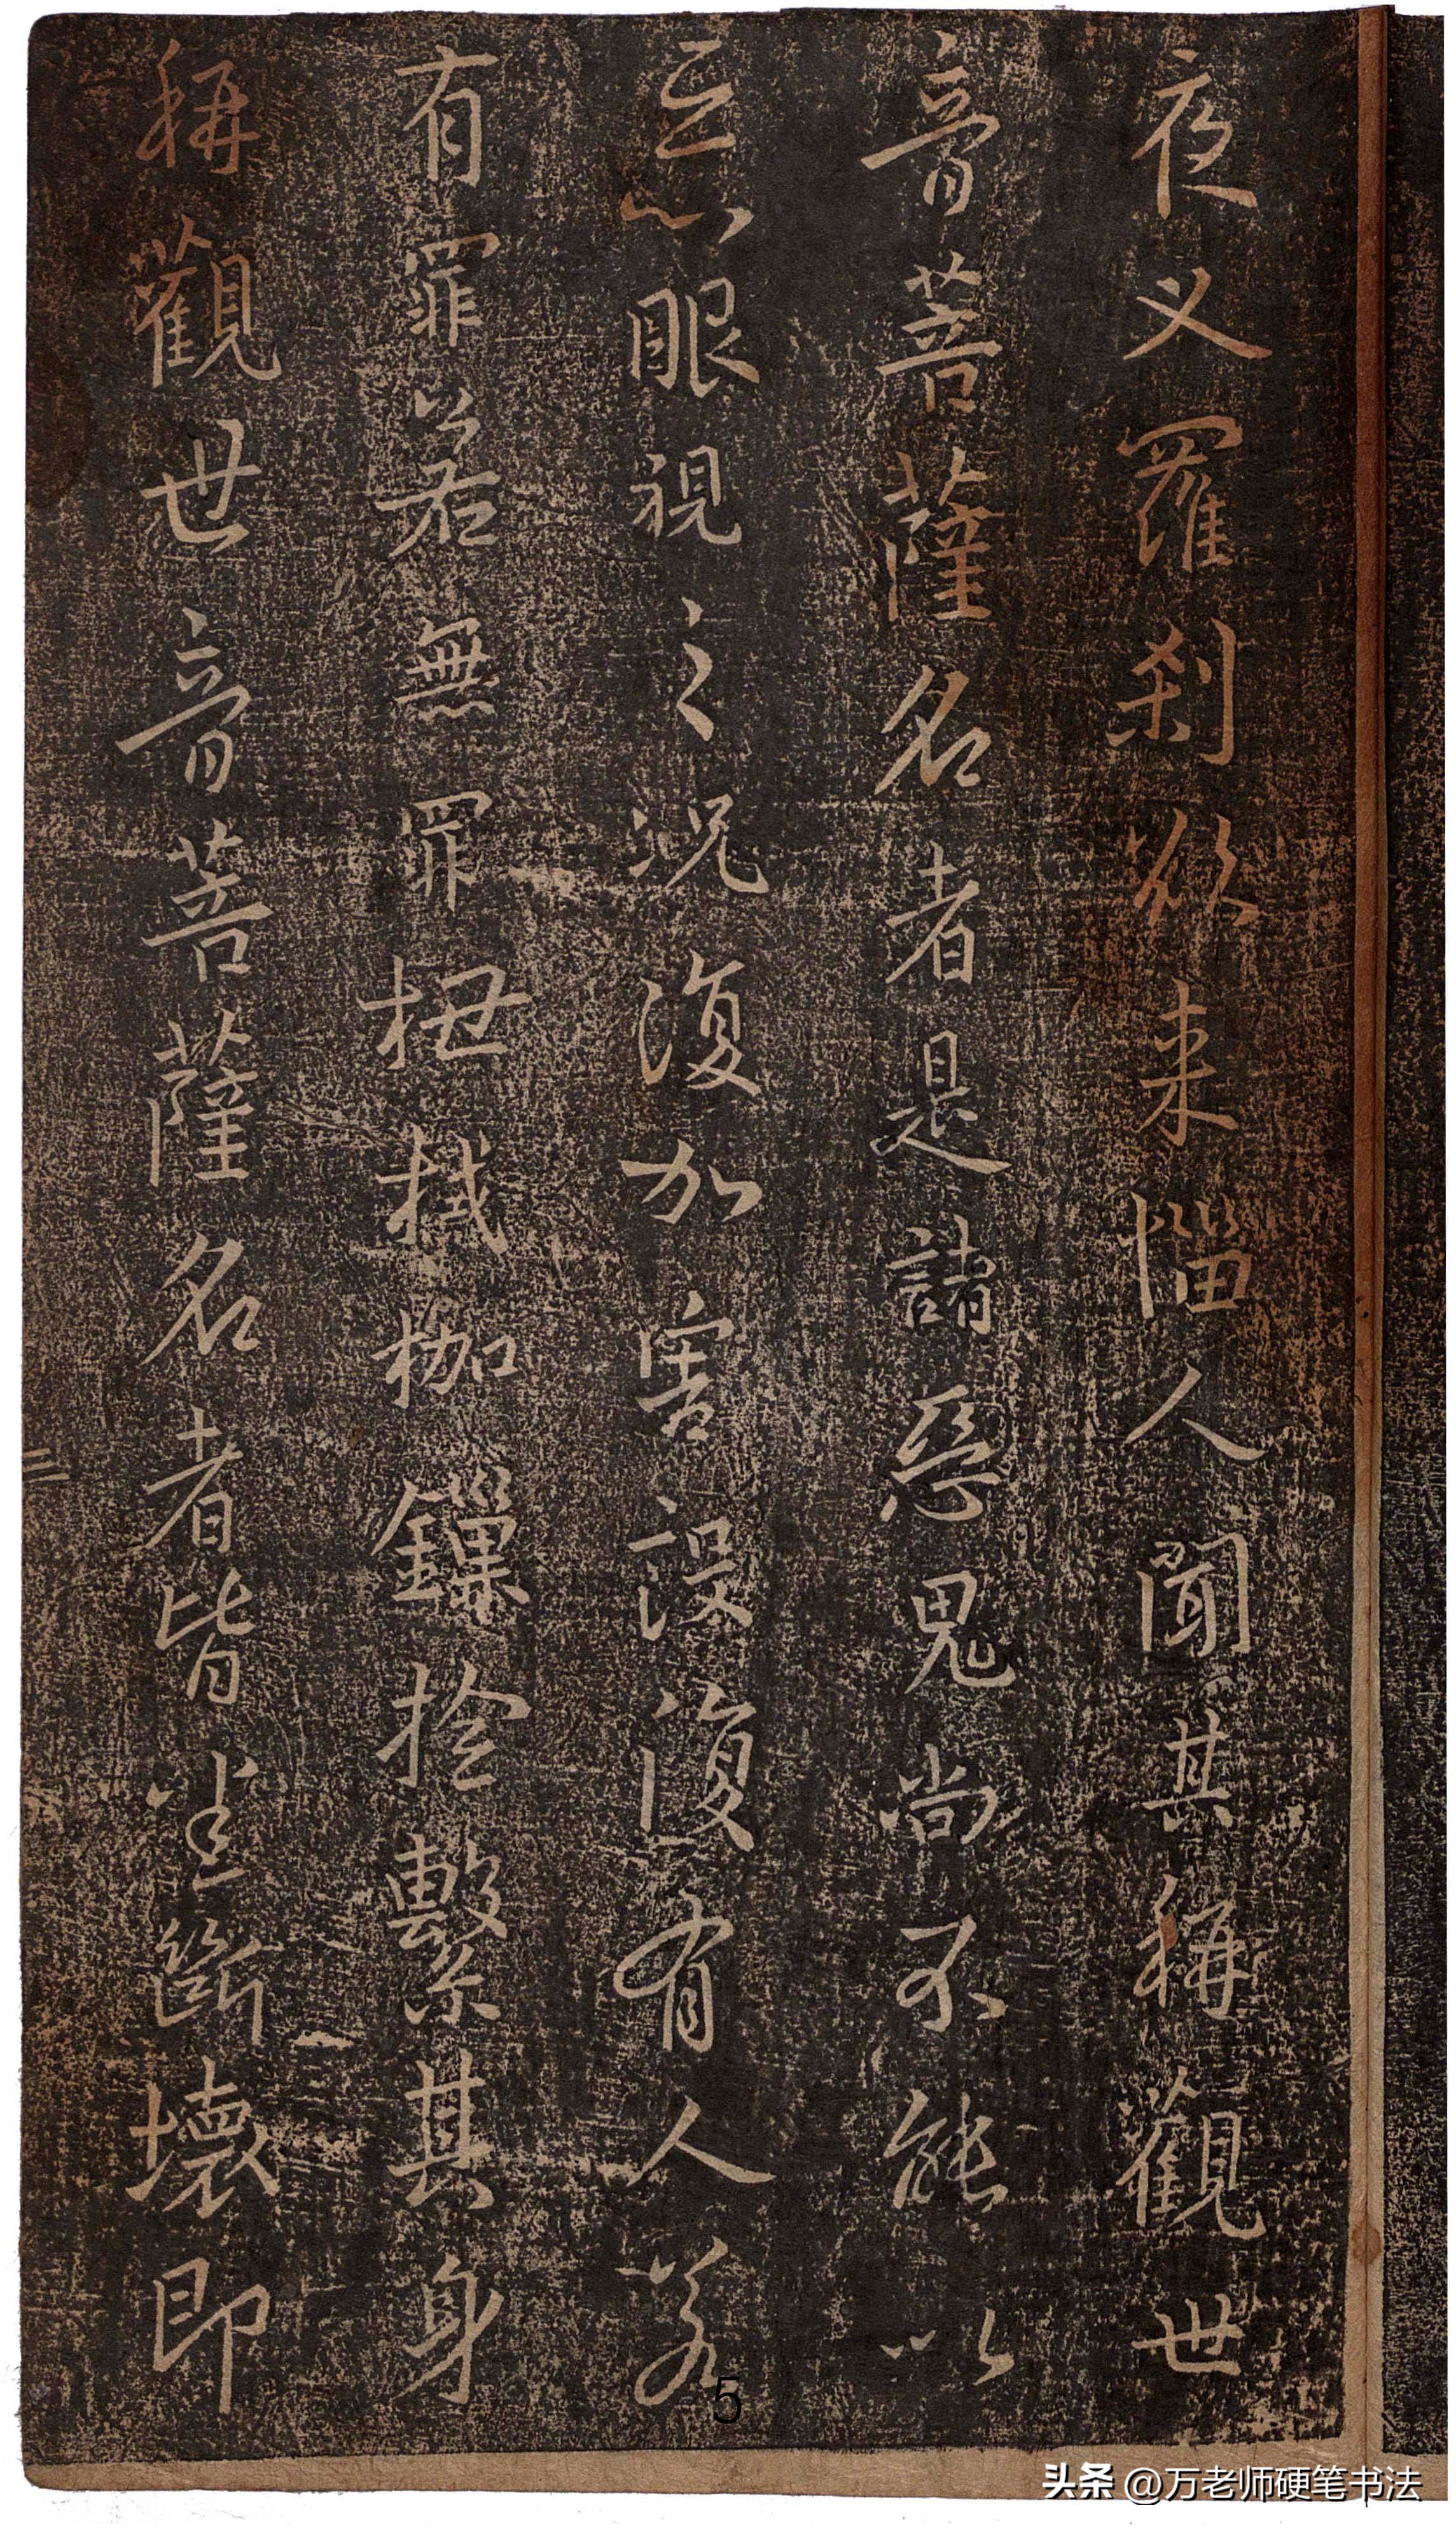 夜叉羅刹欲来惱人聞其稱觀世
音菩薩名者是諸惡鬼尚不能以
惡眼視之況復加害設復有人若
有罪若無罪杻械枷鏁撿繫其身
稱觀世音菩薩名者皆悉斷壞即
三
5
头条 @万老师硬笔书法